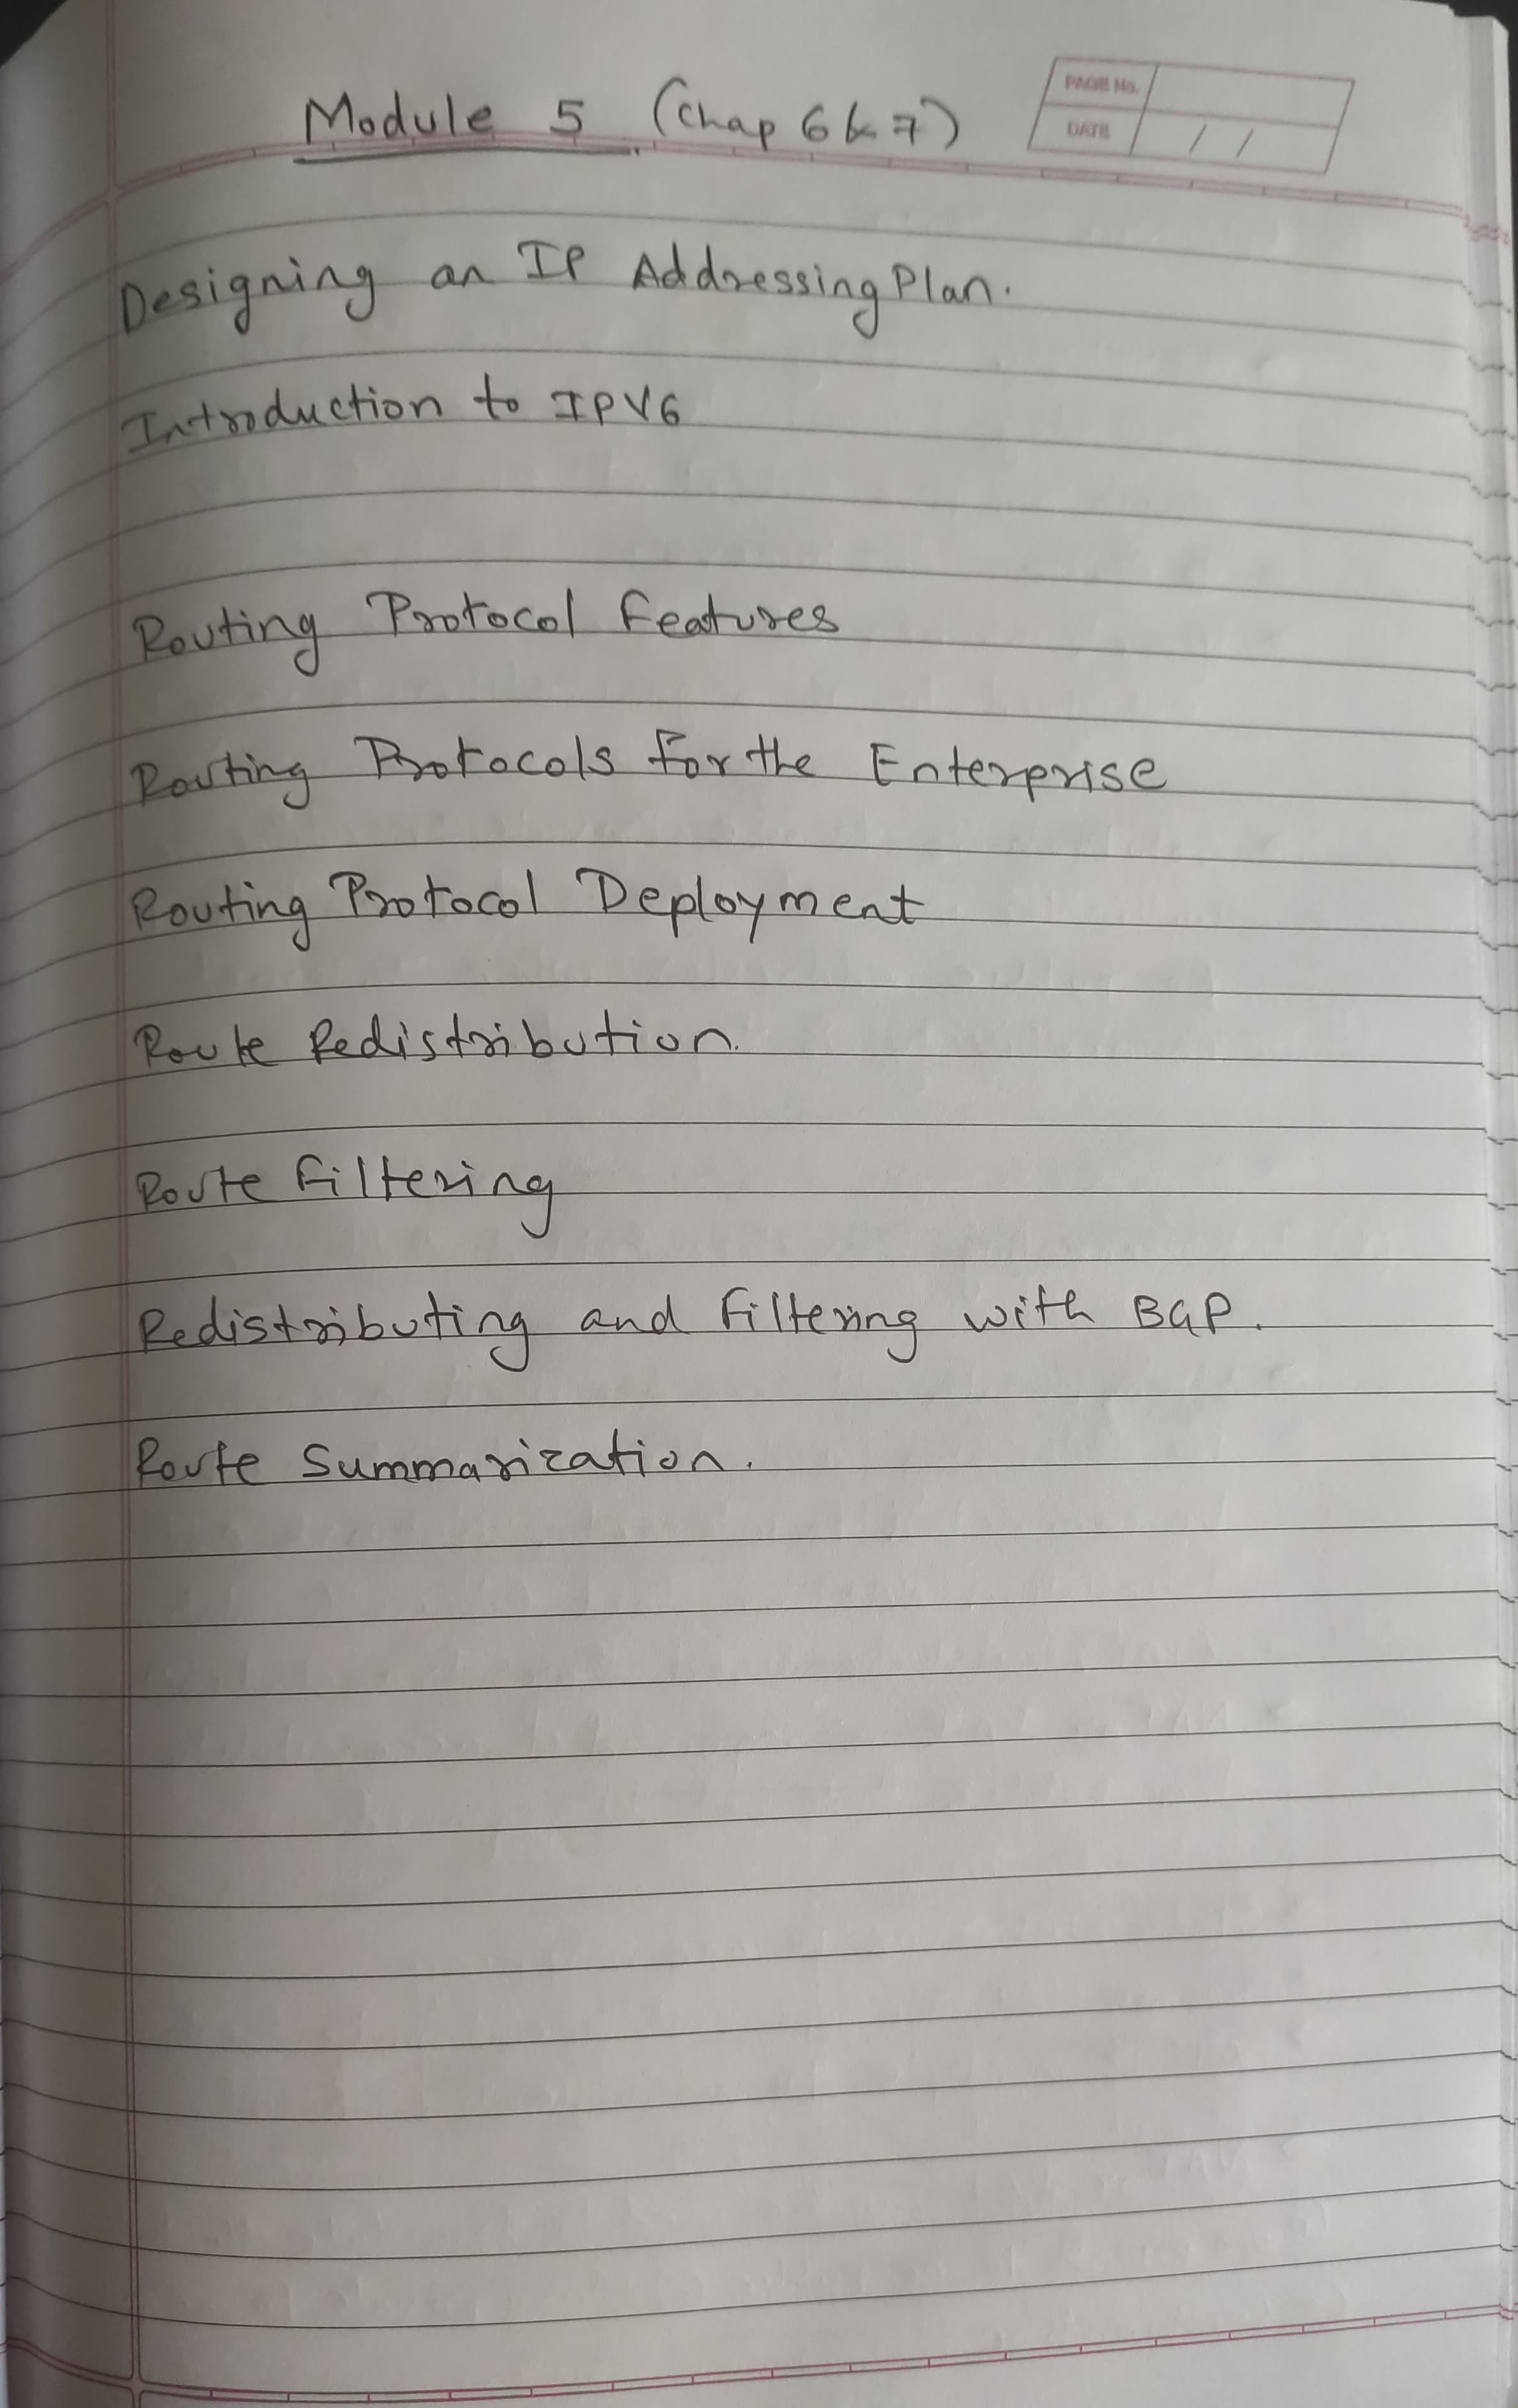 PAGE No.
DATE / /
Module 5 (Chap 6 & 7)
Designing an IP Addressing Plan.
Introduction to IPV6
Routing Protocol Features
Routing Protocols For the Enterprise
Routing Protocol Deployment
Route Redistribution.
Route Filtering
Redistributing and Filtering with BGP.
Route Summarization.